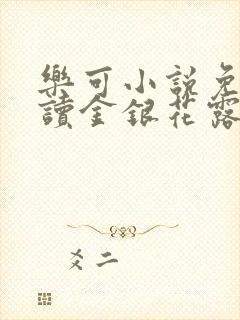 樂可小說免
讀金銀花露
爻二